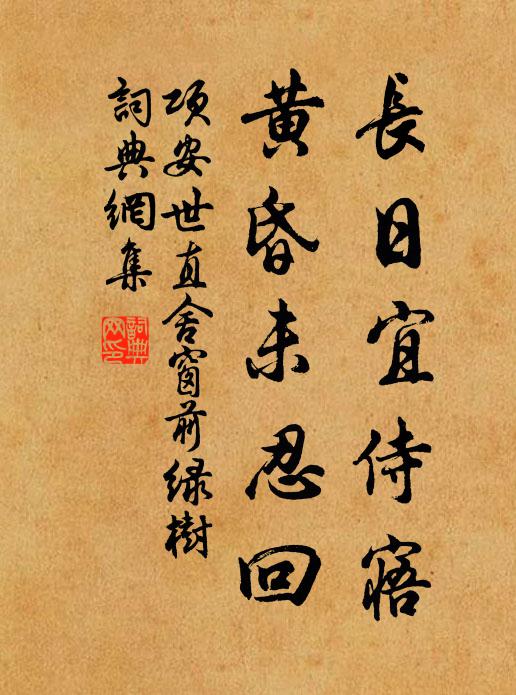 長日宜侍寤
黃昏未忍回
項安世直舍窗前綠樹
詞典網集
詞典網印